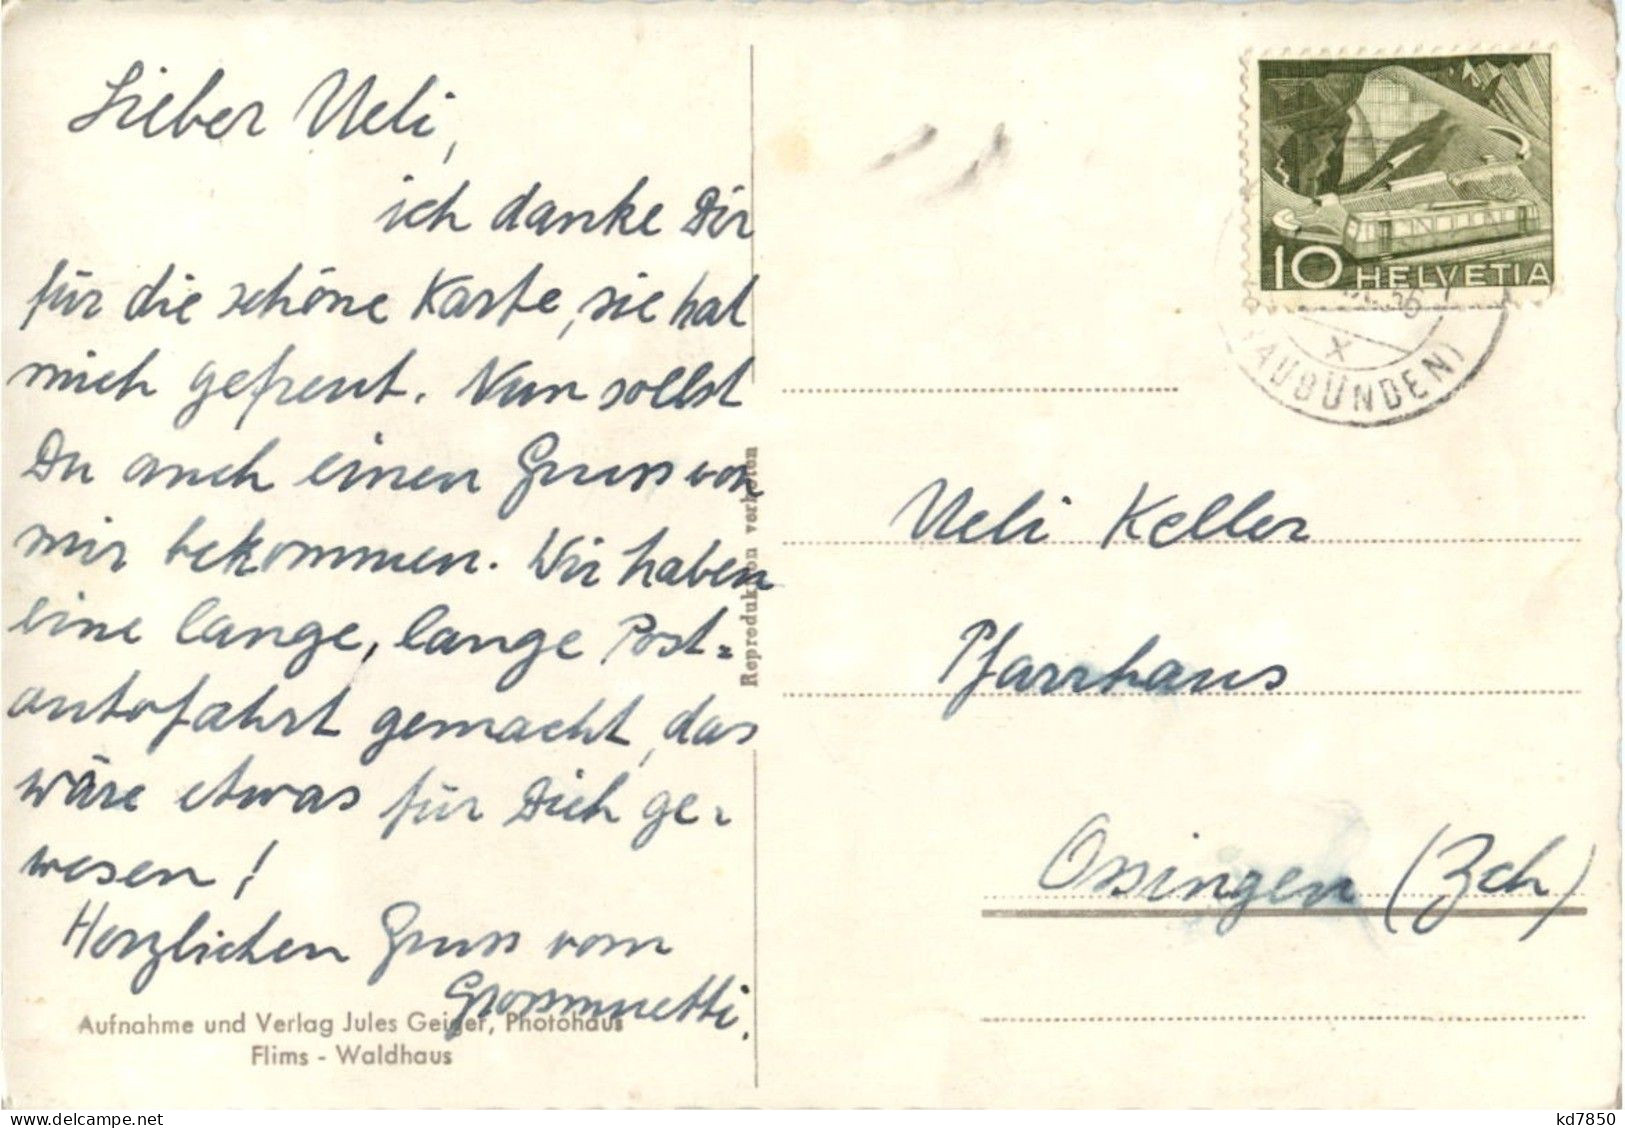 Lieber Ueli,
ich danke Dir
für die schöne Karte, sie hat
mich gefreut. Nun sollst
Du auch einen Gruss von
mir bekommen. Wir haben
eine lange, lange Post=
autofahrt gemacht, das
wäre etwas für Dich ge-
wesen!
Herzlichen Gruss vom
Grossmuetti.
Aufnahme und Verlag Jules Geiger, Photohaus
Flims - Waldhaus
Reproduktion verboten
10 HELVETIA
56
(GRAUBÜNDEN)
Ueli Keller
Pfarrhaus
Ossingen (Zch)
delcampe.net
kd7850